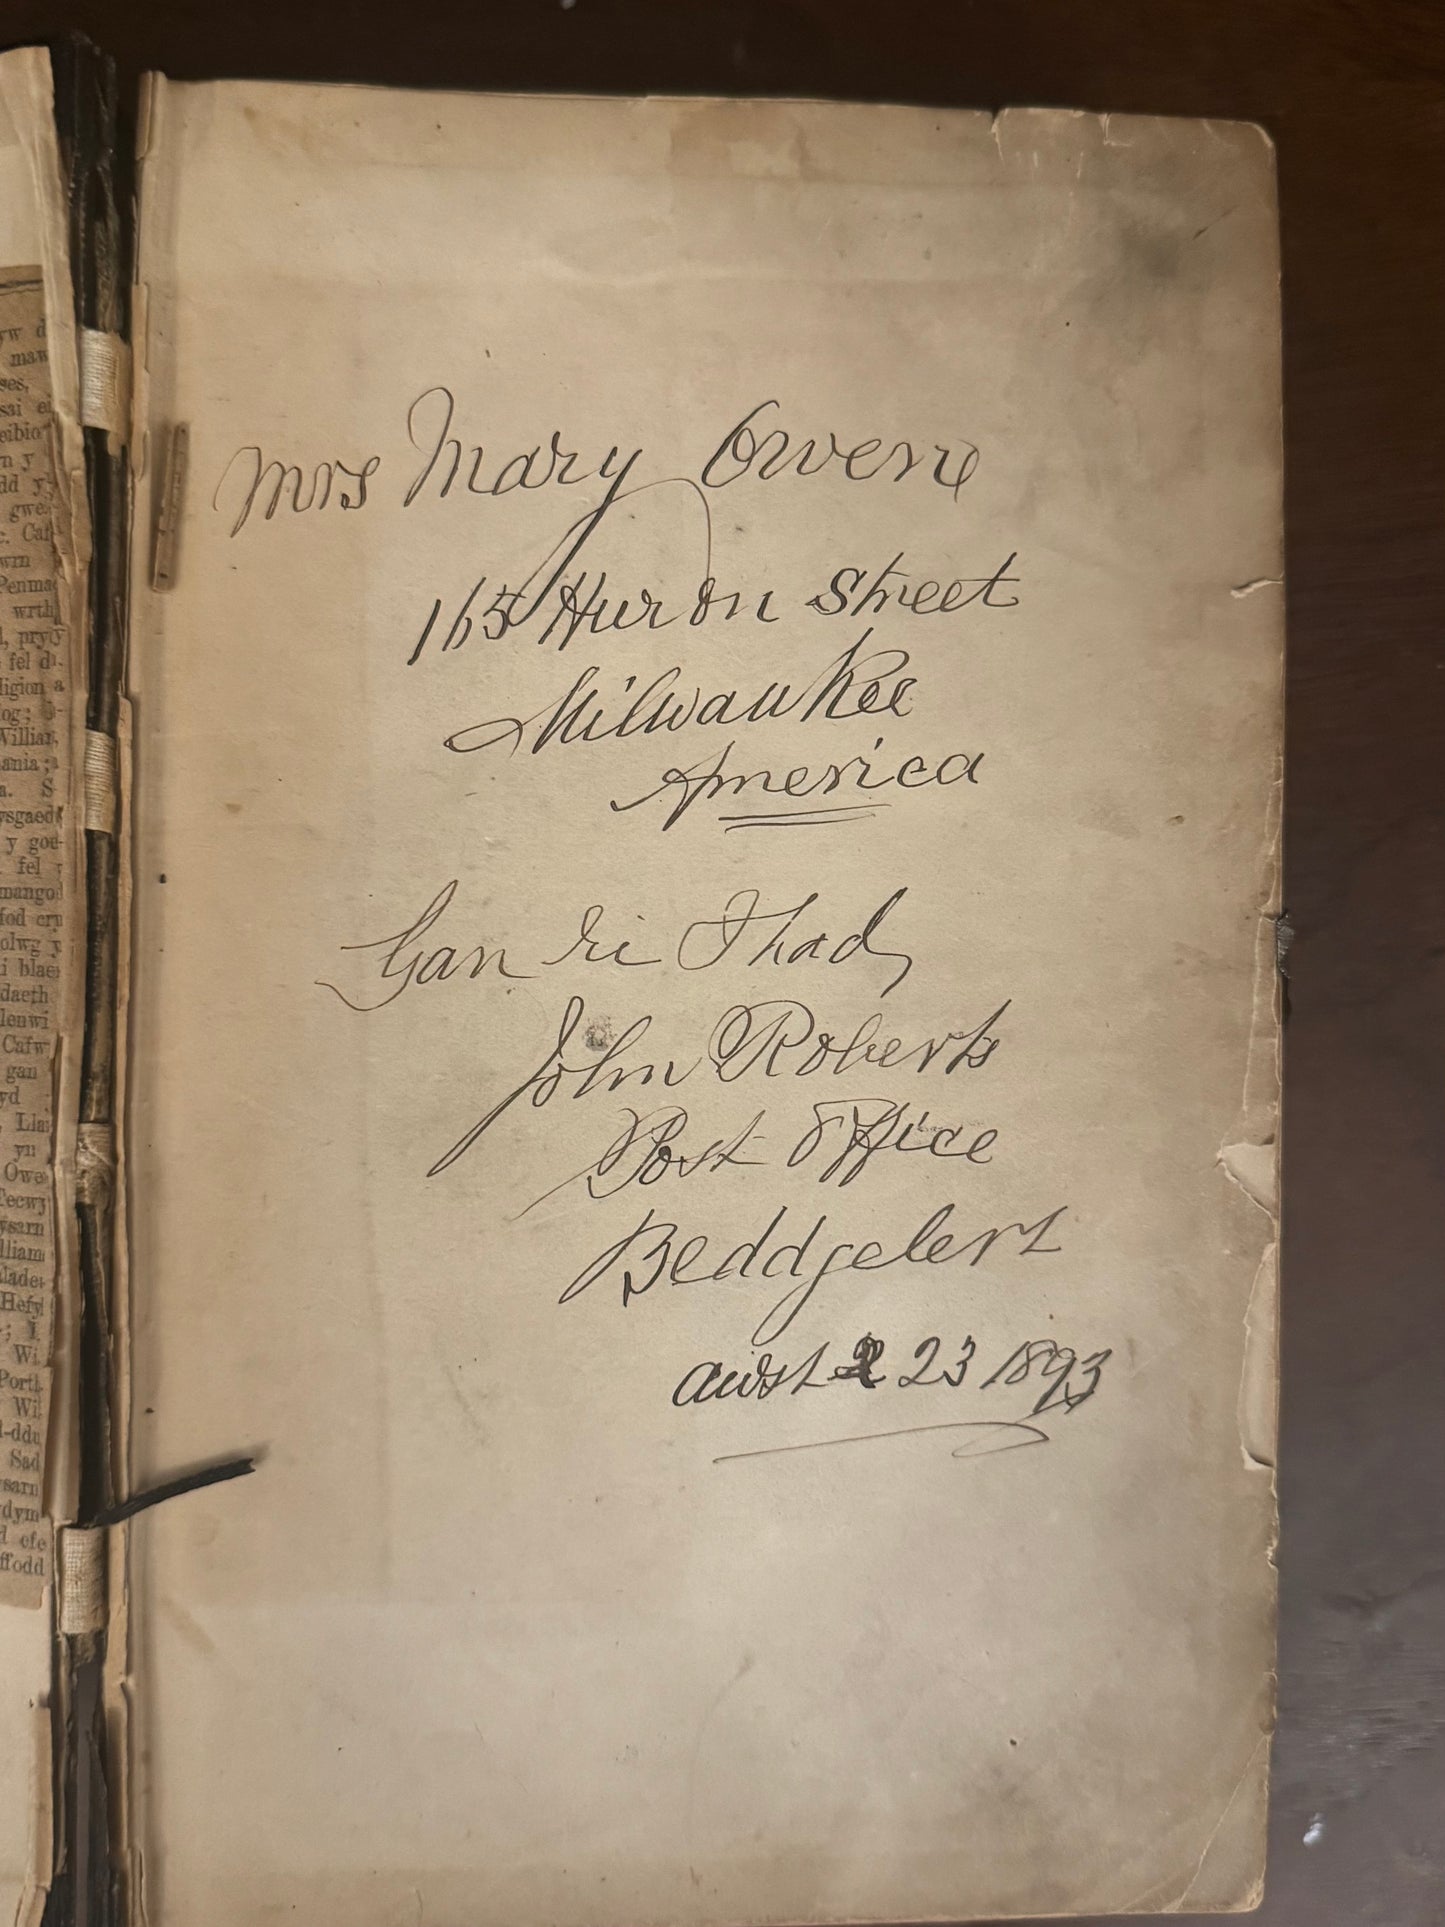 yw d
maw
ses,
sai ei
eibio
n y
dd y
gwe
c. Caf
wrn
Penma
wrth
l, pryd
fel di
ligion a
og;
Willian
ania;
a. S
ysgaed
y goe
fel y
mango
fod ery
olwg y
i blae
daeth
lenwi
Cafw
gan
yd
Lla
yn
Owe
Tecwy
ysarn
lliam
alade
Hefyd
; I
Wi
Port
Wi
l-ddu
Sad
sarn
dym
d efe
ffodd
Mrs Mary Owen
165 Huron Street
Milwaukee
America
Gan ei Thad,
John Roberts
Post Office
Beddgelert
awst 23 1893